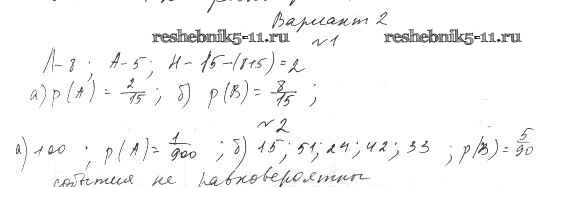 Вариант 2
reshebnik5-11.ru reshebnik5-11.ru
№1
Л-8; А-5; Н-15-(8+5)=2
а) p(A)=2/15; б) p(B)=8/15;
№2
а) 100; p(A)=1/900; б) 15; 51; 24; 42; 33; p(B)=5/90
события не равновероятны